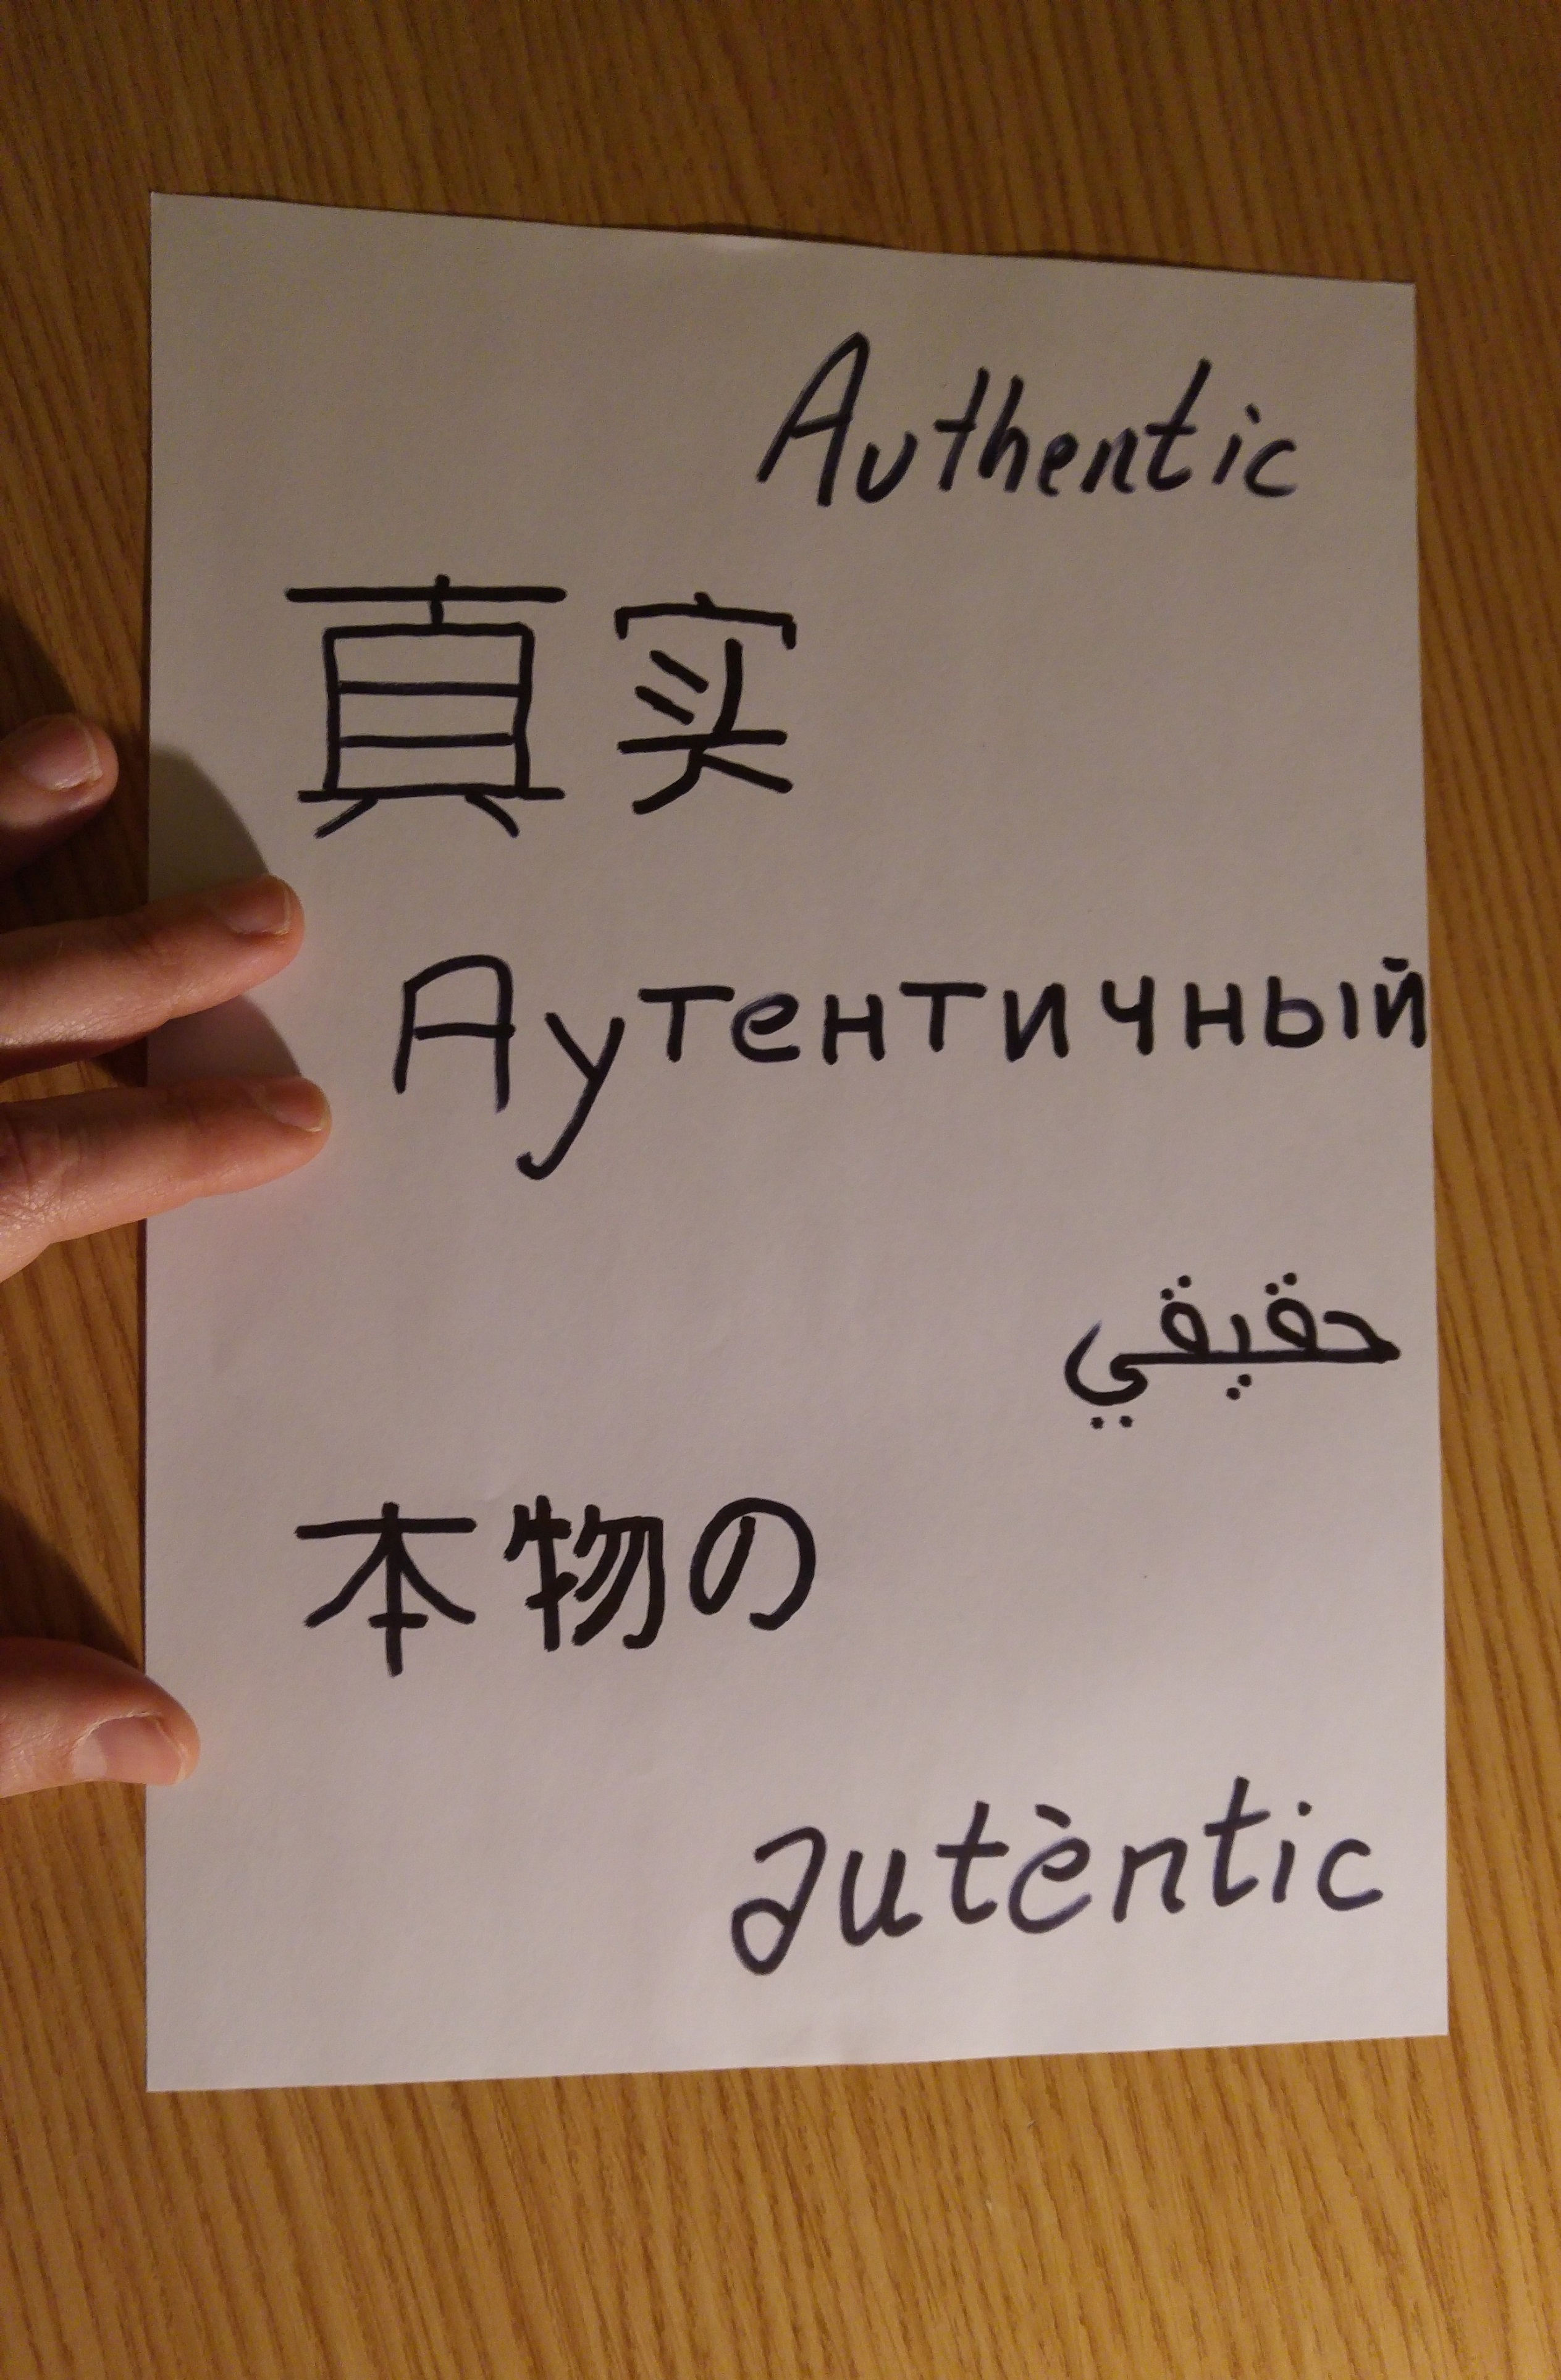 Authentic
真实
Аутентичный
حقيقي
本物の
autèntic